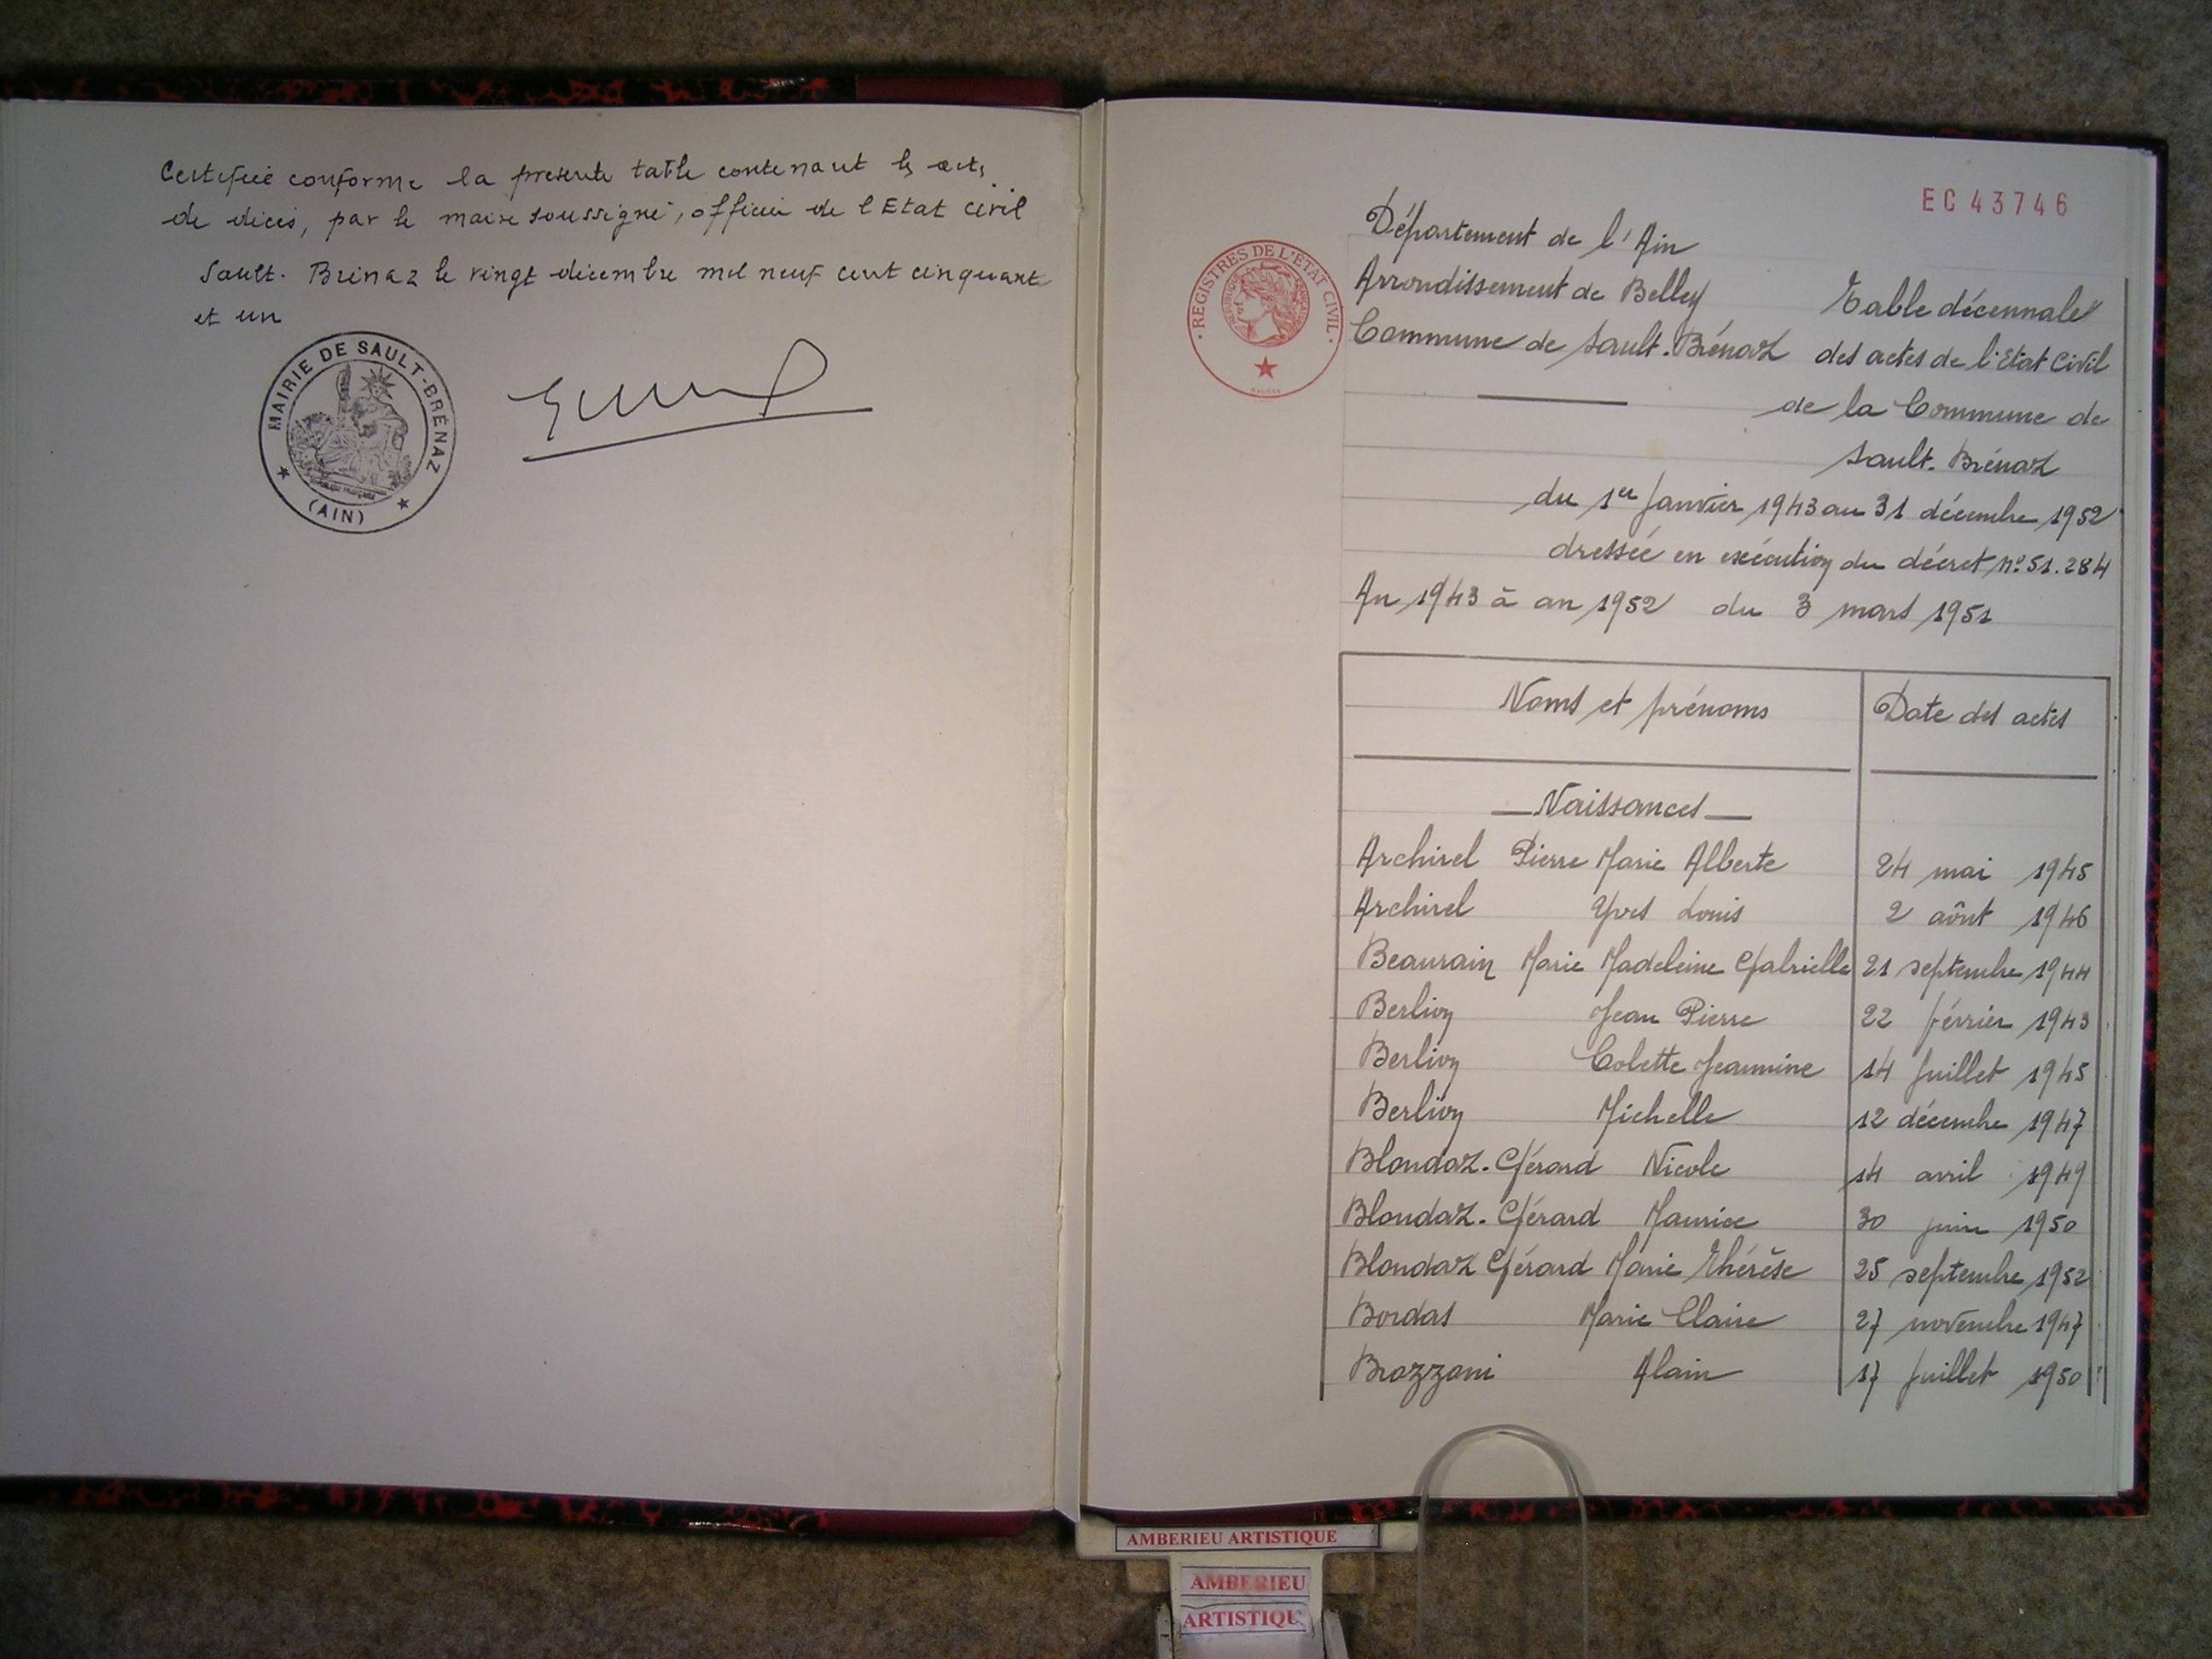 Certifiée conforme la presente table contenant les actes
de décès, par le maire soussigné, officier de l'Etat civil
Sault-Brénaz le vingt décembre mil neuf cent cinquante
et un
MAIRIE DE SAULT-BRÉNAZ
(AIN)
EC 43746
REGISTRES DE L'ÉTAT CIVIL
Département de l'Ain
Arrondissement de Belley
Table décennale
Commune de Sault-Brénaz
des actes de l'Etat Civil
de la Commune de
Sault-Brénaz
du 1er Janvier 1943 au 31 décembre 1952
dressée en exécution du décret n° 51.284
An 1943 à an 1952 du 3 mars 1951
Noms et prénoms Date des actes
Naissances
Archirel Pierre Marie Alberte 24 mai 1945
Archirel Yves Louis 2 aôut 1946
Beaurain Marie Madeleine Gabrielle 21 septembre 1944
Berlioy Jean Pierre 22 février 1943
Berlioy Colette Jeannine 14 Juillet 1945
Berlioy Michelle 12 décembre 1947
Blondaz-Gérard Nicole 14 avril 1949
Blondaz-Gérard Maurice 30 juin 1950
Blondaz Gérard Marie Thérèse 25 septembre 1952
Bordas Marie Claire 27 novembre 1947
Brazzani Alain 17 Juillet 1950
AMBERIEU ARTISTIQUE
AMBERIEU
ARTISTIQU